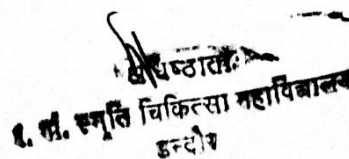 अधिष्ठाता
म. गां. स्मृति चिकित्सा महाविद्यालय
इन्दौर